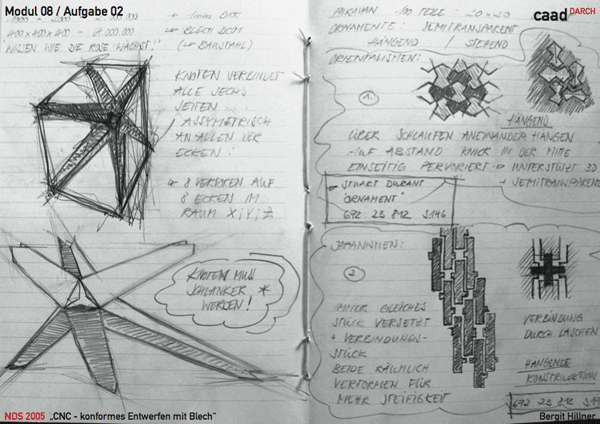 Modul 08 / Aufgabe 02
caad DARCH
"WISSEN WIE DIE ROSE WÄCHST."
→ BLECH DC01
(→ BAUSTAHL)
KNOTEN VERBINDET
ALLE SECHS
SEITEN
ASSYMETRISCH
AN ALLEN VER
ECKEN!
8 VEKTOREN AUF
8 ECKEN IM
RAUM X;Y;Z
KNOTEN MUSS
SCHLANKER *
WERDEN!
PARAVAN - 100 TEILE: 20x20
ORNAMENTE: SEMITRANSPARENT
HÄNGEND / STEHEND
ORIENTALISTEN:
1.
HÄNGEND
ÜBER SCHLAUFEN ANEINANDER HÄNGEN
AUF ABSTAND KNICK IN DER MITTE
EINSEITIG PERVORIERT → UNTERSTÜTZT 3D
→ SEMITRANSPARENT
STUART DURANT
"ORNAMENT"
692. 23 812 S146
JAPANISCHES:
2
IMMER GLEICHES
STÜCK VERSETZT
+ VERBINDUNGS-
STÜCK
BEIDE RÄUMLICH
VERFORMEN FÜR
MEHR STEIFIGKEIT
VERBINDUNG
DURCH LASCHEN
HÄNGENDE
KONSTRUKTION
692 23 812
NDS 2005 „CNC - konformes Entwerfen mit Blech"
Bergit Hillner